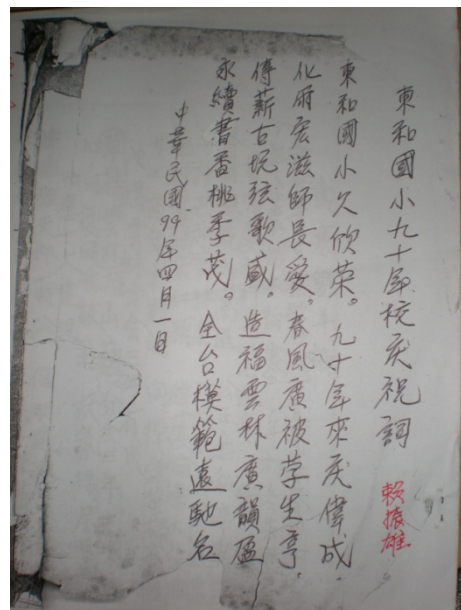 東和國小九十年校庆祝詞 賴振雄
東和國小久欣荣。九十年來庆偉成。
化雨宏滋師長愛。春風廣被莘生亨。
傳薪古坑弦歌盛。造福雲林廣韻盈
永續書香桃李茂。全台模範遠馳名
中華民國99年四月一日